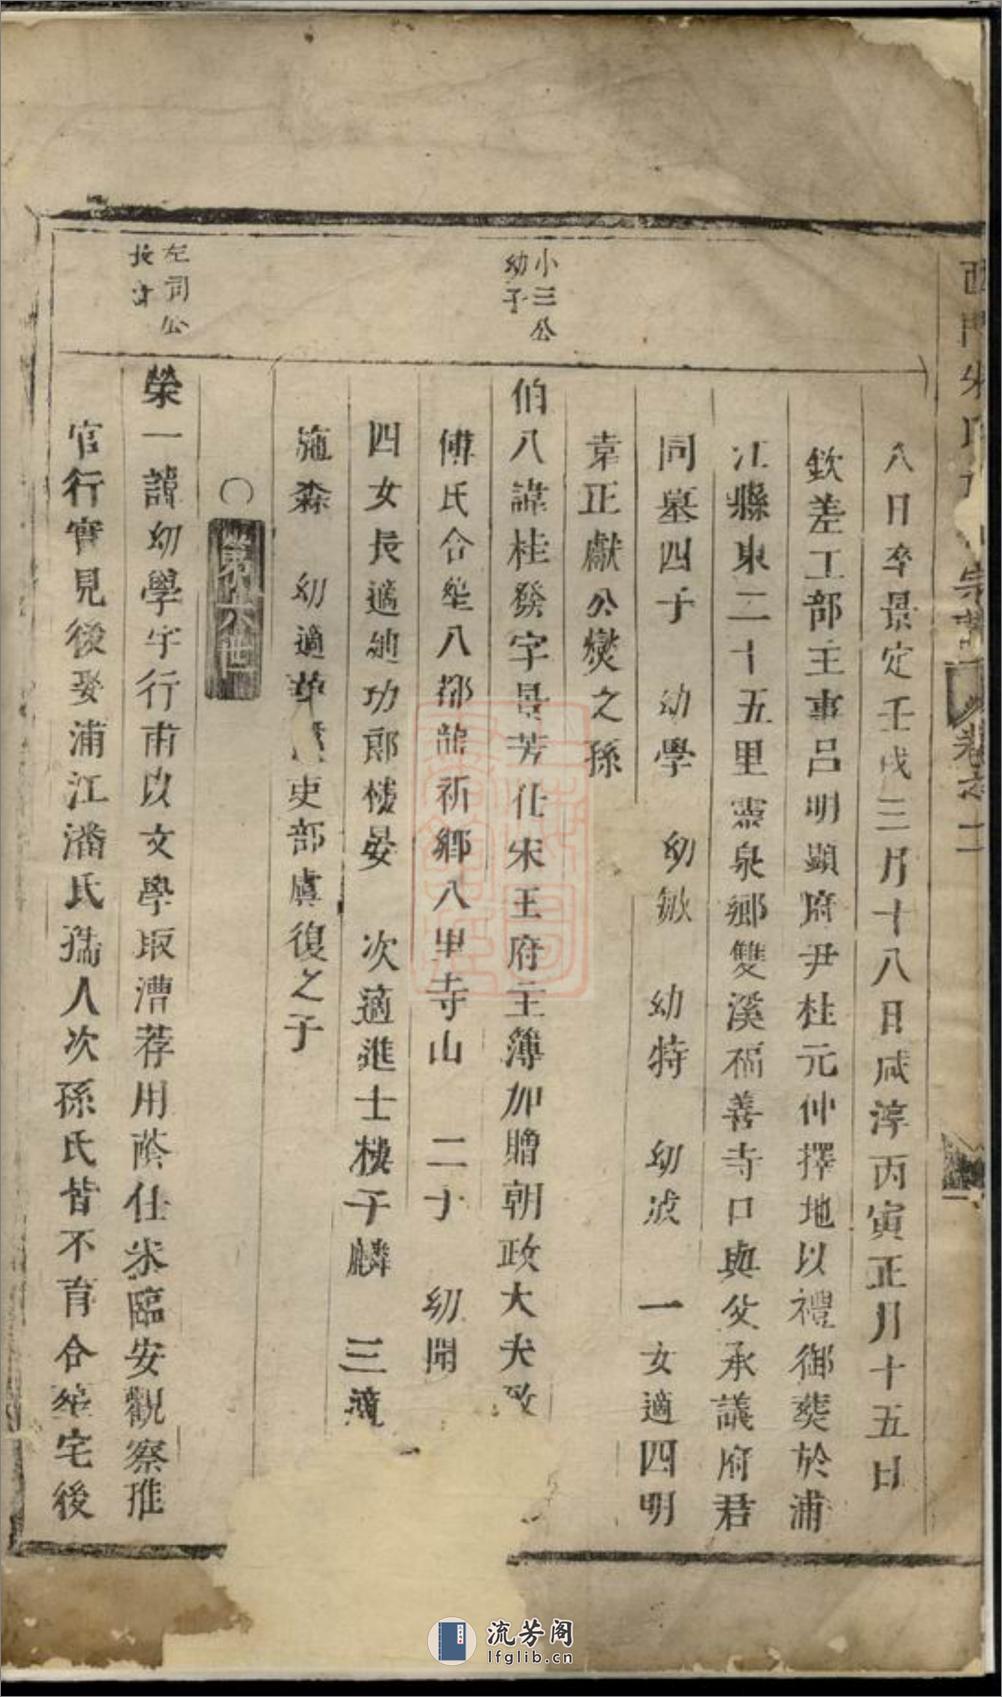 西門朱氏 宗譜 卷之二
八日卒景定壬戌三月十八日咸淳丙寅正月十五日
欽差工部主事呂明顯府尹杜元仲擇地以禮御葬於浦
江縣東二十五里靈泉鄉雙溪福善寺口與父承議府君
同墓四子 幼學 幼敏 幼特 幼波 一女適四明
韋正獻公燮之孫
小三公
幼子
伯八諱桂發字景芳仕宋王府主簿加贈朝政大夫
傅氏合塟八都龍祈鄉八里寺山 二子 幼開
四女長適迪功郎樓晏 次適進士樓千麟 三適
施森 幼適 吏部虞復之子
○第 六世
左司公
長
榮一諱幼學字行甫以文學取漕荐用蔭仕宋臨安觀察推
官行實見後娶浦江潘氏孺人次孫氏皆不育合塟宅後
流芳阁
lfglib.cn